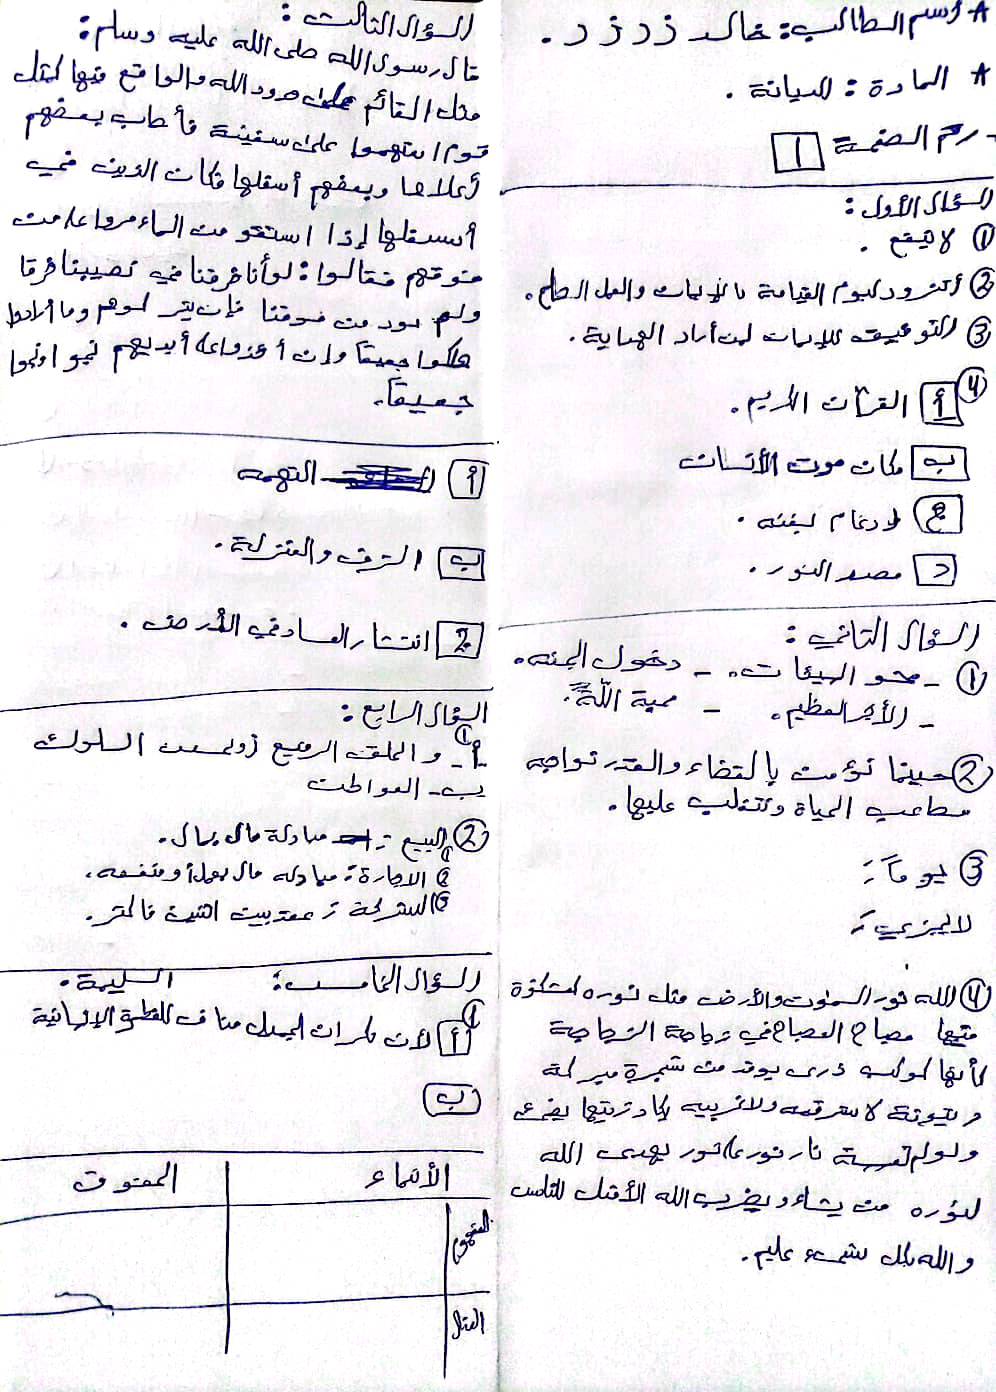 * اسم الطالب: خالد زدزد.
* المادة: الديانة.
- رقم الصفحة 1
السؤال الأول:
① لا تنفع.
② أتزود ليوم القيامة بالإيمان والعمل الصالح.
③ التوفيق للإيمان لمن أراد الهداية.
④ أ القرآن الكريم.
ب مكان موت الأنسان
ج إدغام بغنه.
د مصدر النور.
السؤال الثاني:
① - محو السيئات. - دخول الجنة.
- الأجر العظيم. - محبة الله.
② حينما نؤمن بالقضاء والقدر نواجه
مصاعب الحياة ونتغلب عليها.
③ يوماً:
لا يجزي:
④ الله نور السموت والأرض مثل نوره كمشكوة
فيها مصباح المصباح في زجاجة الزجاجة
كأنها كوكب دري يوقد من شجرة مبركة
زيتونة لا شرقية ولا غربية يكاد زيتها يضيء
ولو لم تمسسه نار نور على نور يهدي الله
لنوره من يشاء ويضرب الله الأمثل للناس
والله بكل شيء عليم.
السؤال الثالث:
قال رسول الله صلى الله عليه وسلم:
مثل القائم على حدود الله والواقع فيها كمثل
قوم استهموا على سفينة فأصاب بعضهم
أعلاها وبعضهم أسفلها فكان الذين في
أسفلها إذا استقو من الماء مروا على من
فوقهم فقالوا: لو أنا خرقنا في نصيبنا خرقا
ولم نؤد من فوقنا فإن يتركوهم وما أرادوا
هلكوا جميعاً وإن أخذوا على أيديهم نجوا ونجوا
جميعاً.
أ التهمه
ب الترف والمنزلة.
2. انتشار الفساد في الأرض.
السؤال الرابع:
① أ- والخلق الرفيع وحسن السلوك
ب- العواطف
② ① البيع: مبادلة مال بمال.
② الاجارة: مبادلة مال بعمل أو منفعه.
③ الشركة: عقد بين اثنين فأكثر.
السؤال الخامس:
① أ لأن نكران الجميل مناف للفطرة الإنسانية
السليمة.
ب
الأسماء الحقوق
العم
الخال